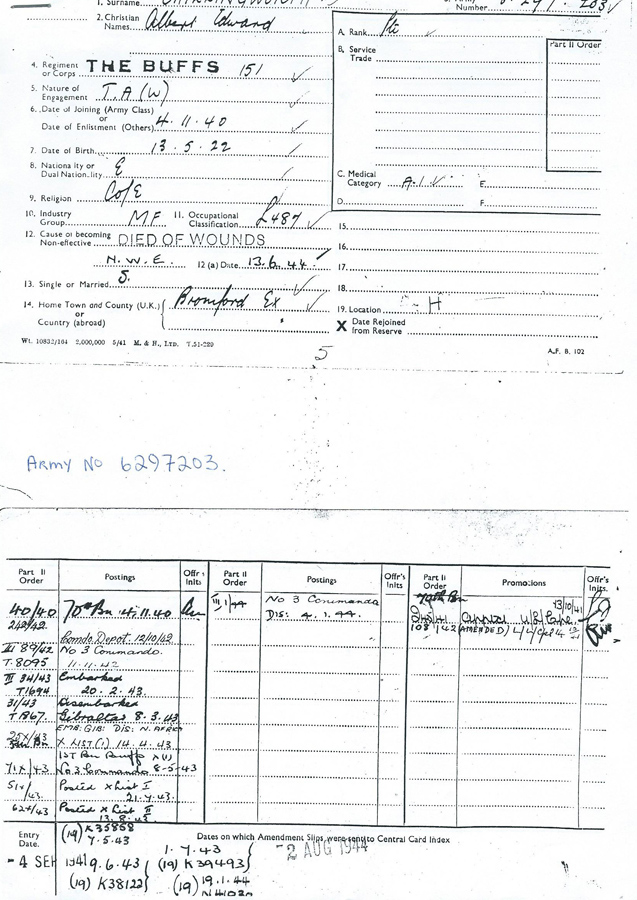 1. Surname
2. Christian Names Albert Edward
Number
A. Rank Pte
B. Service Trade
Part II Order
4. Regiment or Corps THE BUFFS 151
5. Nature of Engagement T.A (W)
6. Date of Joining (Army Class)
or
Date of Enlistment (Others) 4.11.40
7. Date of Birth 13.5.22
8. Nationality or Dual Nationality E
C. Medical Category A.1 E.
9. Religion C of E
D. F.
10. Industry Group MF 11. Occupational Classification L487
15.
12. Cause of becoming Non-effective DIED OF WOUNDS
16.
N.W.E. 12 (a) Date 13.6.44
17.
13. Single or Married S.
18.
14. Home Town and County (U.K.) Ex
or
Country (abroad)
19. Location H
X Date Rejoined from Reserve
Wt. 10832/104 2,000,000 5/41 M. & H., LTD. T.51-229
5
A.F. B. 102
ARMY NO 6297203.
Part II Order Postings Offr's Inits Part II Order Postings Offr's Inits Part II Order Promotions Offr's Inits.
40/40 70th Bn 4.11.40
III 1/44 No 3 Commando
DIS: 4.1.44.
70th Bn
13/10/41
242/42 Comdo Depot 12/10/42
103/42 (AMENDED)
III 89/42 No 3 Commando.
T.8095 11.11.42
III 34/43 Embarked
T1694 20.2.43
31/43 Disembarked
T1867 Gibraltar 8.3.43
EMB: GIB: DIS: N. AFRICA
X LIST (1) 14.4.43
1ST Bn Buffs X(1)
71X/43 No 3 Commando 8-5-43
51X/43 Posted X List I
21.7.43
62X/43 Posted X List II
13.8.43
Entry Date. (19) K35858
7.5.43
Dates on which Amendment Slips were sent to Central Card Index
-4 SEP 1941
9.6.43
(19) K38122
1.7.43
(19) K39493
-2 AUG 1944
(19) 19.1.44